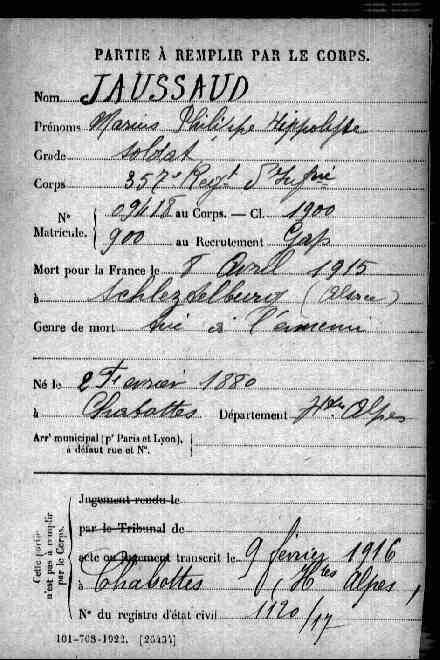 PARTIE À REMPLIR PAR LE CORPS.
Nom JAUSSAUD
Prénoms Marius Philippe Hippolyte
Grade soldat
Corps 357e Regt d'Infrie
N° Matricule. 09418 au Corps. — Cl. 1900
900 au Recrutement Gap
Mort pour la France le 8 Avril 1915
à (Alsace)
Genre de mort tué à l'ennemi
Né le 2 Fevrier 1880
à Chabottes Département Htes Alpes
Arrt municipal (pr Paris et Lyon),
à défaut rue et N°.
Cette partie n'est pas à remplir par le Corps.
Jugement rendu le
par le Tribunal de
acte ou jugement transcrit le 9 février 1916
à Chabottes (Htes Alpes)
N° du registre d'état civil 1120/17
101-708-1922. [26434]